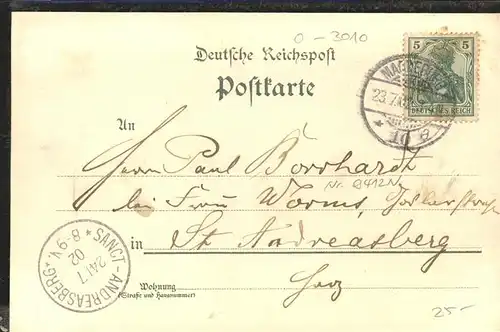 0-3010
Deutsche Reichspost
Postkarte
5 5
DEUTSCHES REICH
MAGDEBURG
23.7.02
An
Herrn Paul Borchardt
Nr. B412N
bei Frau Worms, Goslarerstraße
in St Andreasberg
Harz
Wohnung
(Straße und Hausnummer)
SANCT-ANDREASBERG
24/7
02
8-9 V.
25-